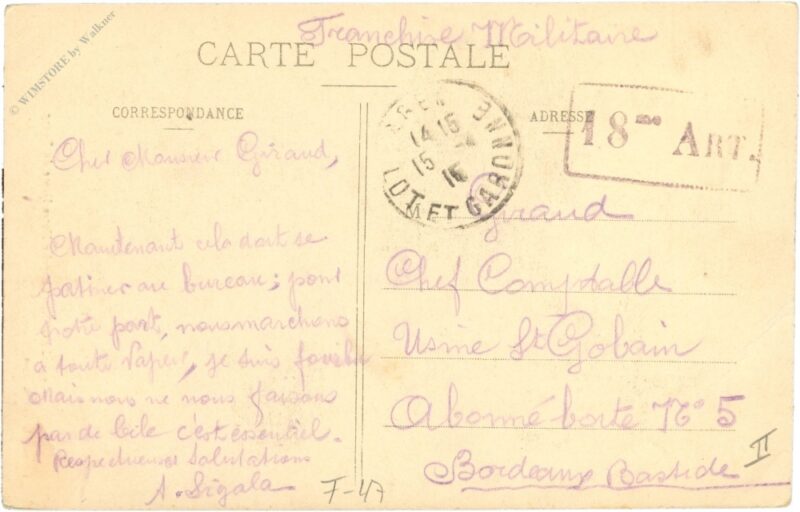 © WIMSTORE by Walkner
Franchise Militaire
CARTE POSTALE
CORRESPONDANCE
ADRESSE
14 15
15
LOT ET GARONNE
18me ART.
Cher Monsieur Giraud,
Maintenant cela doit se
patiner au bureau; pour
notre part, nous marchons
à toute vapeur, je suis
Mais nous ne nous faisons
pas de bile c'est essentiel.
Respectueuses Salutations
A. Sigala
M Giraud
Chef Comptable
Usine St Gobain
Abonné boîte No 5
Bordeaux Bastide
II
F-47